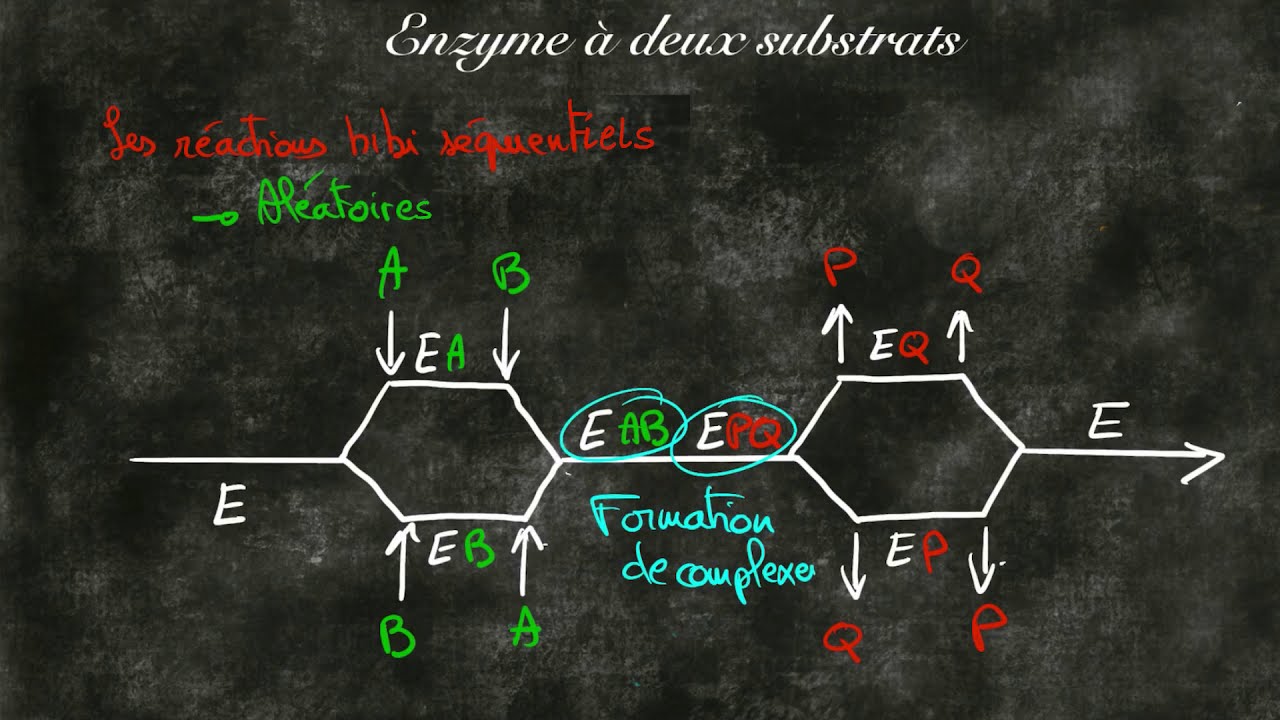 Enzyme à deux substrats
Les réactions bibi séquentiels
→ Aléatoires
A B P Q
EA EQ
E EAB EPQ E
EB EP
Formation
de complexe
B A Q P